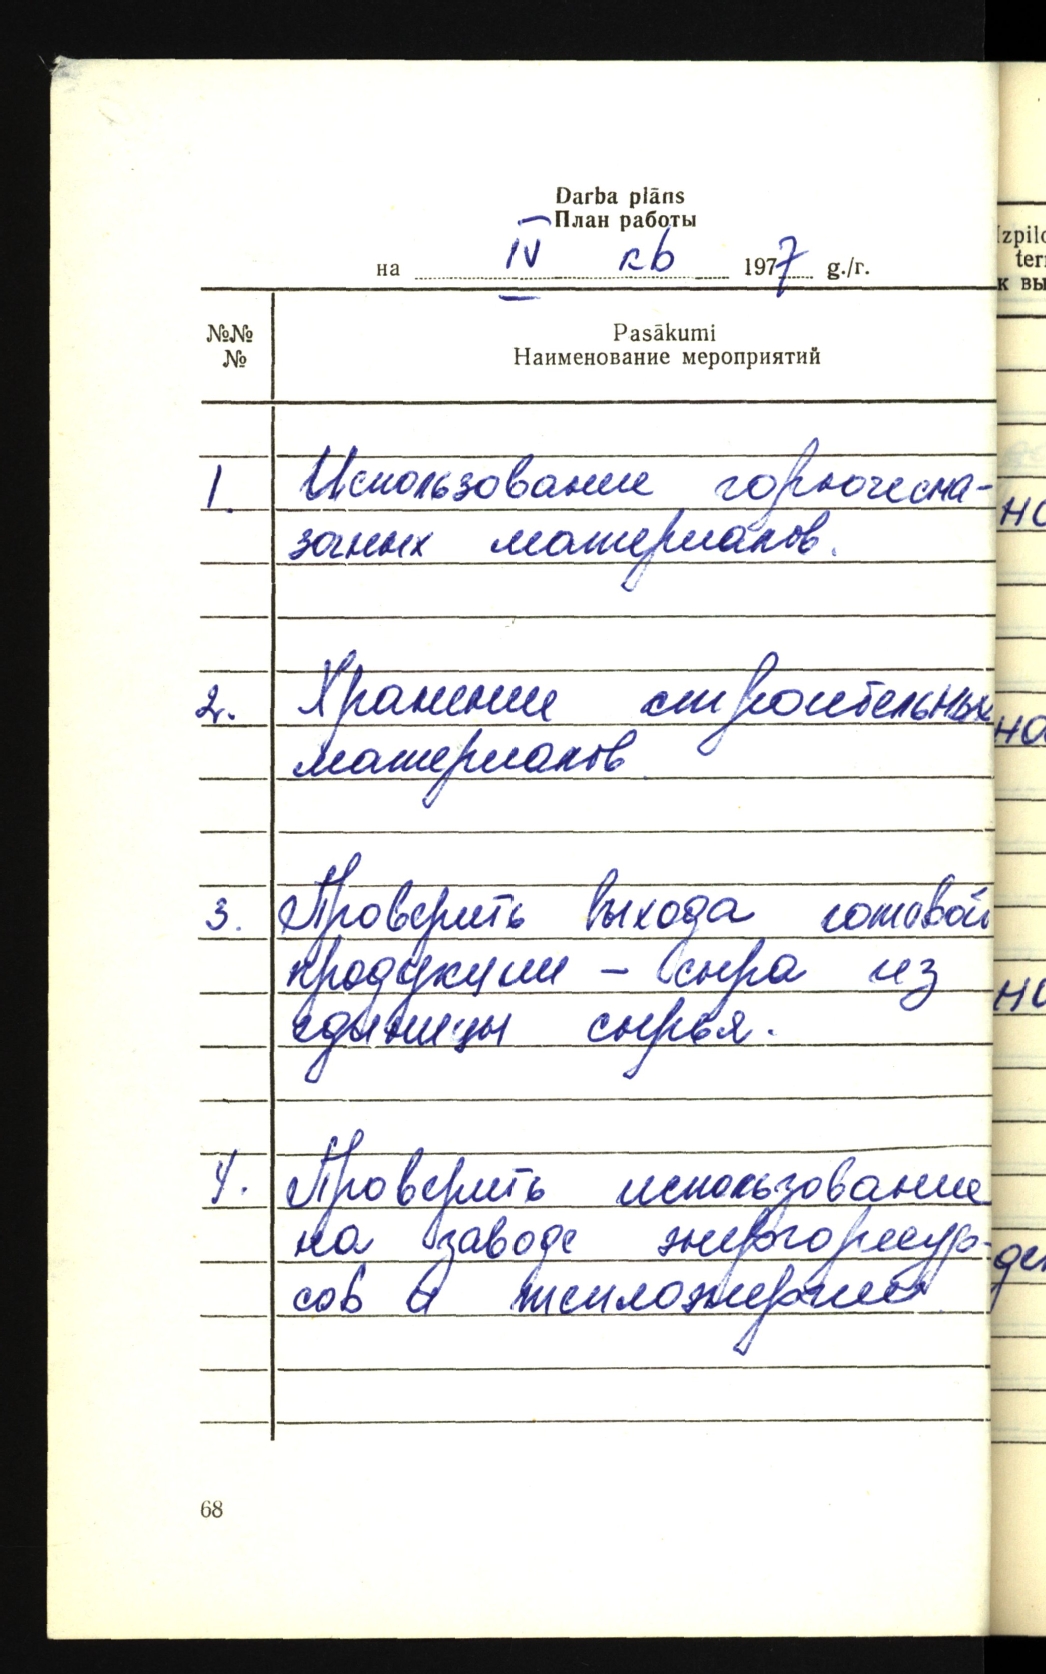 Darba plāns
План работы
на IV кв 1977 g./г.
№№
№
Pasākumi
Наименование мероприятий
1. Использование горючесма-
зочных материалов.
2. Хранение строительных
материалов
3. Проверить выхода готовой
продукции – сыра из
единицы сырья.
4. Проверить использование
на заводе энергоресур-
сов и теплоэнергии
68
Izpil
ter
к вы
но
но
но
де